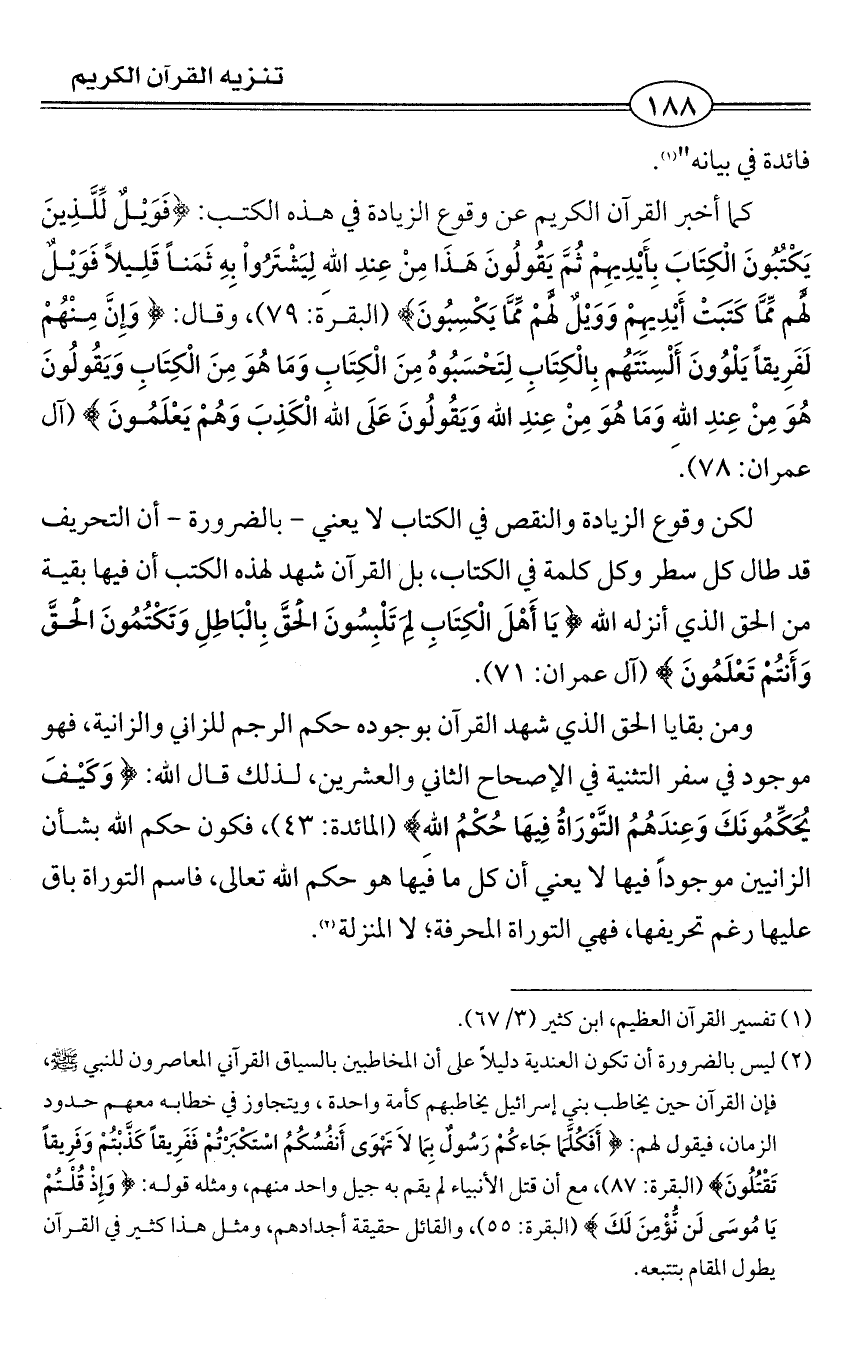 تنزيه القرآن الكريم
١٨٨
فائدة في بيانه"(١).
كما أخبر القرآن الكريم عن وقوع الزيادة في هـذه الكتـب: ﴿فَوَيْلٌ لِّلَّـذِينَ
يَكْتُبُونَ الْكِتَابَ بِأَيْدِيهِمْ ثُمَّ يَقُولُونَ هَـذَا مِنْ عِندِ اللهِ لِيَشْتَرُواْ بِهِ ثَمَنـاً قَلِـيلاً فَوَيْـلٌ
لَّهُم مِّمَّا كَتَبَتْ أَيْدِيهِمْ وَوَيْلٌ لَّهُمْ مِّمَّا يَكْسِبُونَ﴾ (البقـرة: ٧٩)، وقـال: ﴿ وَإِنَّ مِـنْهُمْ
لَفَرِيقاً يَلْوُونَ أَلْسِنَتَهُم بِالْكِتَابِ لِتَحْسَبُوهُ مِنَ الْكِتَابِ وَمَا هُوَ مِنَ الْكِتَابِ وَيَقُولُونَ
هُوَ مِنْ عِندِ اللهِ وَمَا هُوَ مِنْ عِندِ اللهِ وَيَقُولُونَ عَلَى اللهِ الْكَذِبَ وَهُمْ يَعْلَمُـونَ ﴾ (آل
عمران: ٧٨).
لكن وقوع الزيادة والنقص في الكتاب لا يعني - بالضرورة - أن التحريف
قد طال كل سطر وكل كلمة في الكتاب، بل القرآن شهد لهذه الكتب أن فيها بقيـة
من الحق الذي أنزله الله ﴿ يَا أَهْلَ الْكِتَابِ لِمَ تَلْبِسُونَ الْحَقَّ بِالْبَاطِلِ وَتَكْتُمُونَ الْحَـقَّ
وَأَنتُمْ تَعْلَمُونَ ﴾ (آل عمران: ٧١).
ومن بقايا الحق الذي شهد القرآن بوجوده حكم الرجم للزاني والزانية، فهو
موجود في سفر التثنية في الإصحاح الثاني والعشرين، لـذلك قـال الله: ﴿ وَكَيْـفَ
يُحَكِّمُونَكَ وَعِندَهُمُ التَّوْرَاةُ فِيهَا حُكْمُ اللهِ﴾ (المائدة: ٤٣)، فكون حكم الله بشـأن
الزانيين موجوداً فيها لا يعني أن كل ما فيها هو حكم الله تعالى، فاسم التوراة باق
عليها رغم تحريفها، فهي التوراة المحرفة؛ لا المنزلة(٢).
(١) تفسير القرآن العظيم، ابن كثير (٣/ ٦٧).
(٢) ليس بالضرورة أن تكون العندية دليلاً على أن المخاطبين بالسياق القرآني المعاصرون للنبي ﷺ،
فإن القرآن حين يخاطب بني إسرائيل يخاطبهم كأمة واحدة ، ويتجاوز في خطابـه معهـم حـدود
الزمان، فيقول لهم: ﴿ أَفَكُلَّمَا جَاءكُمْ رَسُولٌ بِمَا لاَ تَهْوَى أَنفُسُكُمُ اسْتَكْبَرْتُمْ فَفَرِيقاً كَذَّبْتُمْ وَفَرِيقاً
تَقْتُلُونَ﴾ (البقرة: ٨٧)، مع أن قتل الأنبياء لم يقم به جيل واحد منهم، ومثله قولـه: ﴿ وَإِذْ قُلْـتُمْ
يَا مُوسَى لَن نُّؤْمِنَ لَكَ ﴾ (البقرة: ٥٥)، والقائل حقيقة أجدادهم، ومثـل هـذا كثـير في القـرآن
يطول المقام بتتبعه.